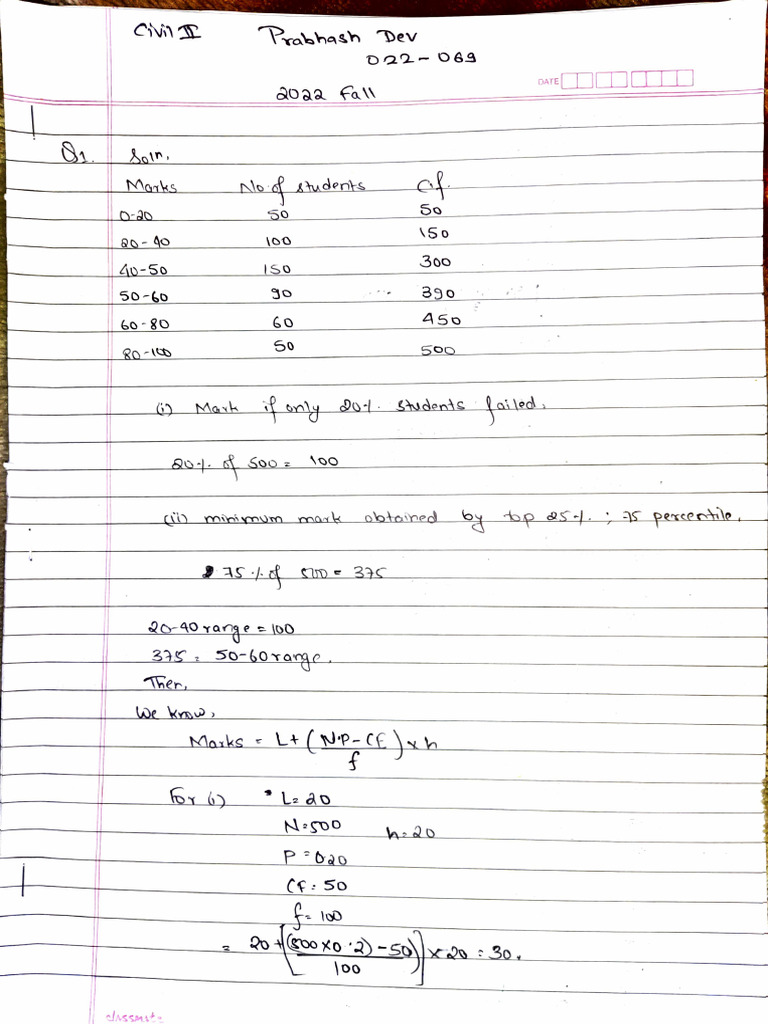 Civil II Prabhash Dev
022-069
DATE
2022 Fall
Q1. Soln,
Marks No. of students C.f.
0-20 50 50
20-40 100 150
40-50 150 300
50-60 90 390
60-80 60 450
80-100 50 500
(i) Mark if only 20% students failed.
20% of 500 = 100
(ii) minimum mark obtained by top 25% ; 75 percentile.
75% of 500 = 375
20-40 range = 100
375 = 50-60 range.
Then,
We know,
Marks = L + (N.P - CF / f) × h
For (i) L = 20
N = 500 h = 20
P = 020
CF = 50
f = 100
= 20 + [(500 × 0.2) - 50) / 100] × 20 = 30.
classmate